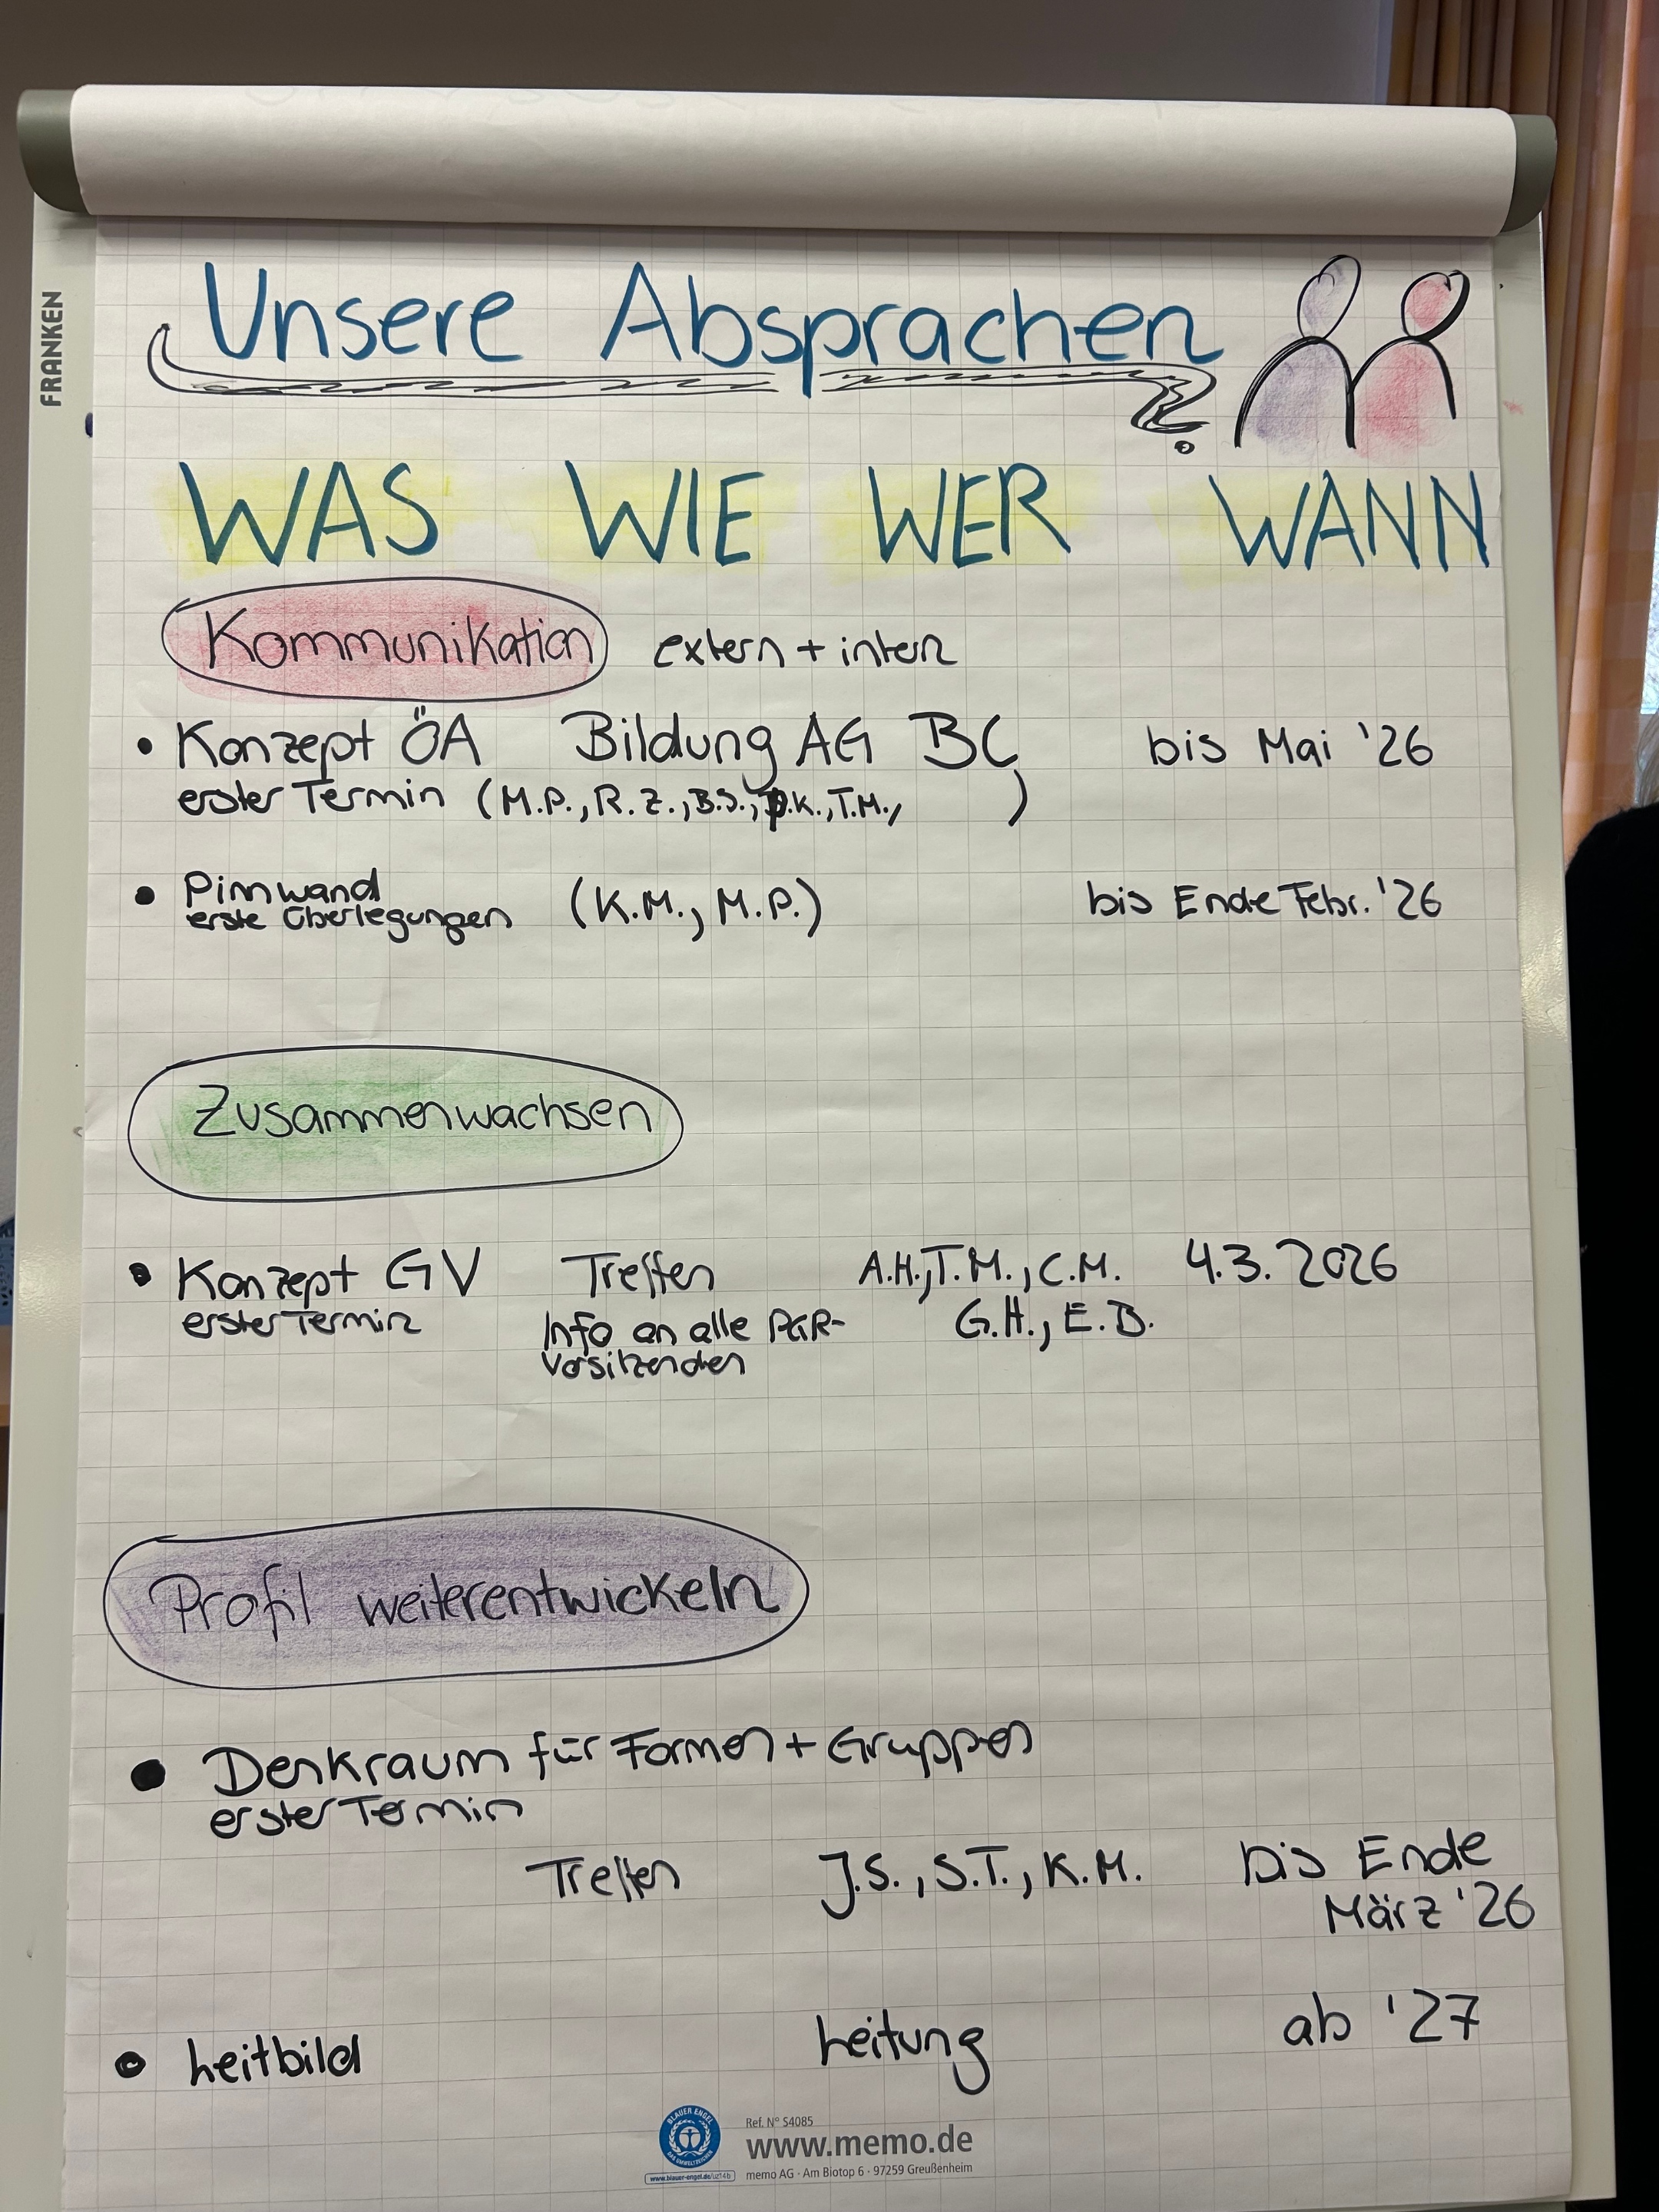 FRANKEN
Unsere Absprachen
WAS WIE WER WANN
Kommunikation extern + intern
• Konzept ÖA Bildung AG BC bis Mai '26
erster Termin (M.P., R.Z., B.S., P.K., T.M., )
• Pinnwand (K.M., M.P.) bis Ende Febr. '26
erste Überlegungen
Zusammenwachsen
• Konzept GV Treffen A.H., T.M., C.M. 4.3.2026
erster Termin Info an alle PGR- G.H., E.B.
Vorsitzenden
Profil weiterentwickeln
• Denkraum für Formen + Gruppen
erster Termin
Treffen J.S., S.T., K.M. bis Ende
März '26
• Leitbild Leitung ab '27
BLAUER ENGEL
DAS UMWELTZEICHEN
www.blauer-engel.de/uz14b
Ref. N° S4085
www.memo.de
memo AG · Am Biotop 6 · 97259 Greußenheim